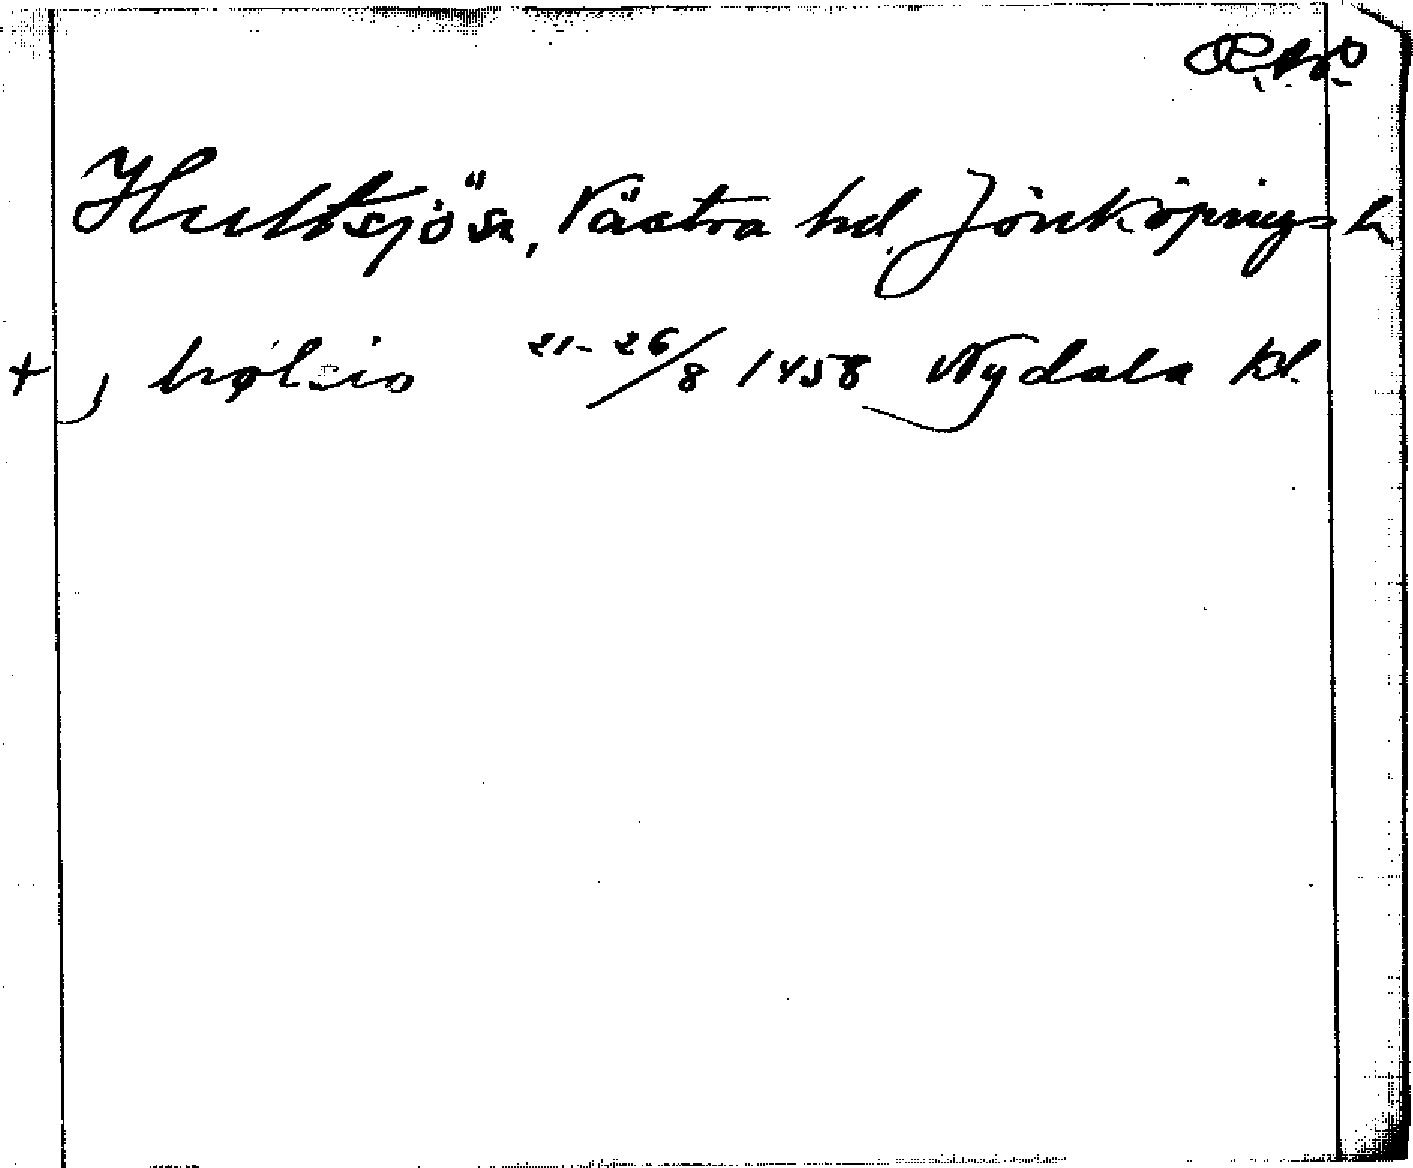 Hultsjö sn, Västra hd. Jönköpings l.
+, hølsio 21-26/8 1458 Nydala kl.